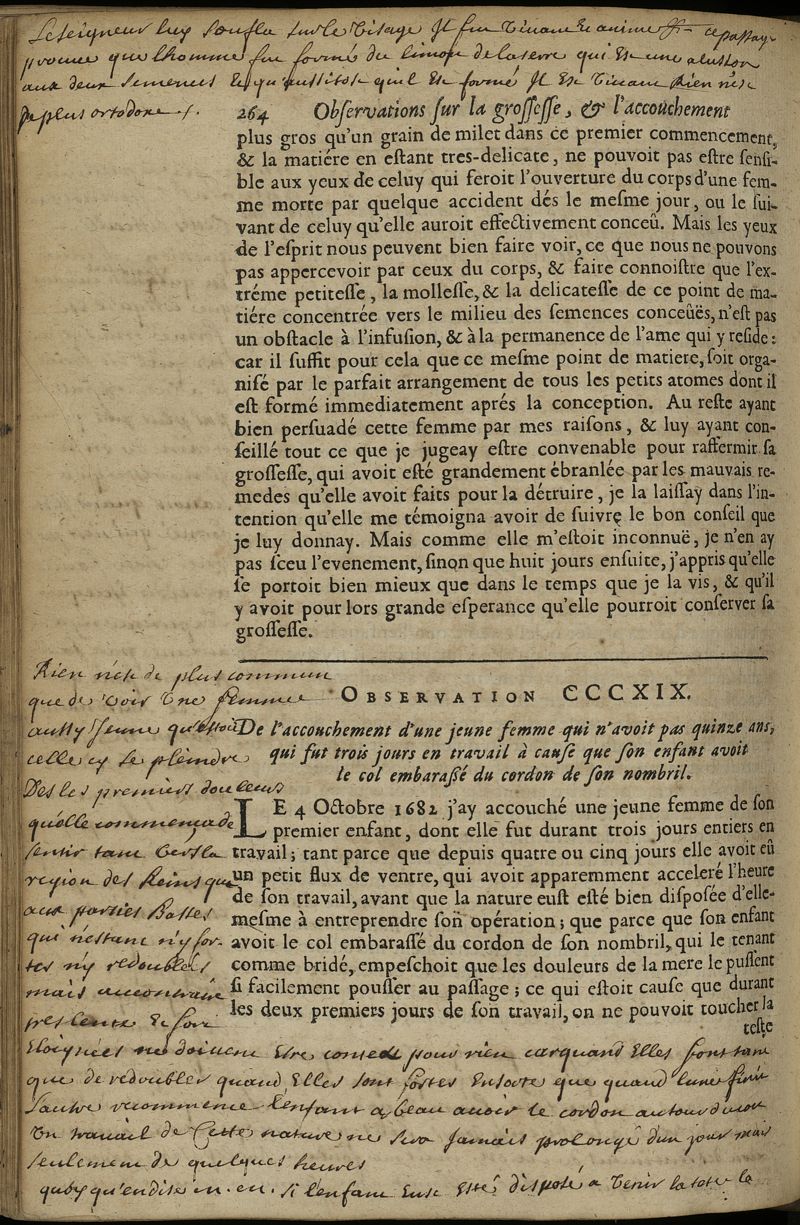 Le seigneur luy soufla sur le visage Il fut vivant et animé ce passage
prouve que lhomme fut formé du limon de la terre qui est une alusion
aux deux semences et qu aussitost quil est formé Il est vivant Rien nest
de plus ortodoxe
264 Obſervations ſur la groſſeſſe, & l'accouchement
plus gros qu'un grain de milet dans ce premier commencement,
& la matiére en eſtant tres-delicate, ne pouvoit pas eſtre ſenſi-
ble aux yeux de celuy qui feroit l'ouverture du corps d'une fem-
me morte par quelque accident dés le meſme jour, ou le ſui-
vant de celuy qu'elle auroit effectivement conceû. Mais les yeux
de l'eſprit nous peuvent bien faire voir, ce que nous ne pouvons
pas appercevoir par ceux du corps, & faire connoiſtre que l'ex-
tréme petiteſſe, la molleſſe, & la delicateſſe de ce point de ma-
tiére concentrée vers le milieu des ſemences conceûës, n'eſt pas
un obſtacle à l'infuſion, & à la permanence de l'ame qui y reſide:
car il ſuffit pour cela que ce meſme point de matiere, ſoit orga-
niſé par le parfait arrangement de tous les petits atomes dont il
eſt formé immediatement aprés la conception. Au reſte ayant
bien perſuadé cette femme par mes raiſons, & luy ayant con-
ſeillé tout ce que je jugeay eſtre convenable pour raffermir ſa
groſſeſſe, qui avoit eſté grandement ébranlée par les mauvais re-
medes qu'elle avoit faits pour la détruire, je la laiſſay dans l'in-
tention qu'elle me témoigna avoir de ſuivre le bon conſeil que
je luy donnay. Mais comme elle m'eſtoit inconnuë, je n'en ay
pas ſceu l'evenement, ſinon que huit jours enſuite, j'appris qu'elle
ſe portoit bien mieux que dans le temps que je la vis, & qu'il
y avoit pour lors grande eſperance qu'elle pourroit conſerver ſa
groſſeſſe.
OBSERVATION CCCXIX.
De l'accouchement d'une jeune femme qui n'avoit pas quinze ans,
qui fut trois jours en travail à cauſe que ſon enfant avoit
le col embaraſſé du cordon de ſon nombril.
LE 4 Octobre 1682 j'ay accouché une jeune femme de ſon
premier enfant, dont elle fut durant trois jours entiers en
travail; tant parce que depuis quatre ou cinq jours elle avoit eû
un petit flux de ventre, qui avoit apparemment acceleré l'heure
de ſon travail, avant que la nature euſt eſté bien diſpoſée d'elle-
meſme à entreprendre ſon opération; que parce que ſon enfant
avoit le col embaraſſé du cordon de ſon nombril, qui le tenant
comme bridé, empeſchoit que les douleurs de la mere le puſſent
ſi facilement pouſſer au paſſage; ce qui eſtoit cauſe que durant
les deux premiers jours de ſon travail, on ne pouvoit toucher la
teſte
Rien nest de plus commun
que de voir une femme
aussy jeune questoit
celle cy se pleindre
Des les premiers douleurs
quelle commença de
sentir tant vers la
region des Reins que
aux parties Basses
qui nestant n'y for-
tes n'y redoublees
mais au contraire
tres lente et fort
Eloignées ne doivent estre contés pour rien car quand Elles font tant
que de redoubler quand Elles sont fortes Ensorte que quand lune finit
lautre recommence Lenfant a beau avoir le cordon autour du col
Un travail de cette nature ne sera Jamais prolongé dun jour mais
seulement de quelques heures
quoy qu'en dise m. m. si lenfant Eust Esté disposé a venir la teste la